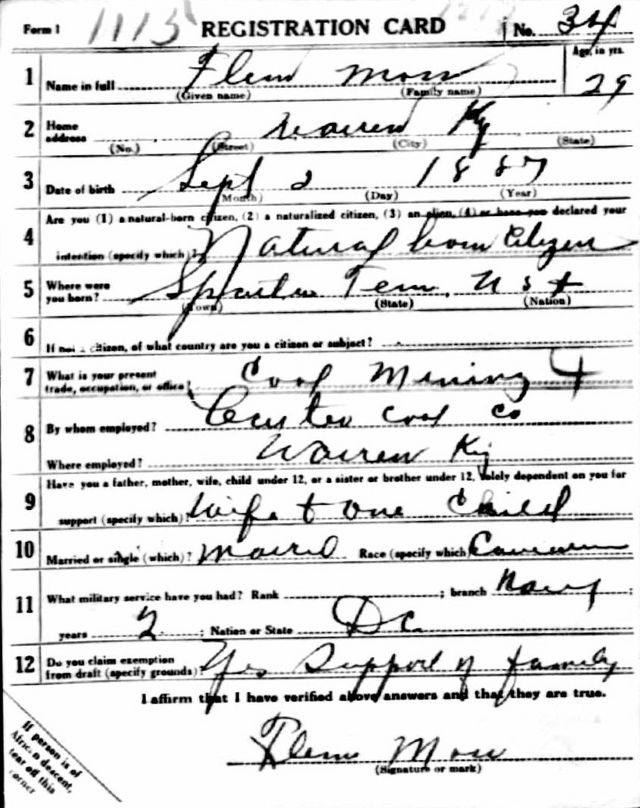 Form 1 1113 REGISTRATION CARD No. 34
Age, in yrs.
1 Name in full Flem Moss 29
(Given name) (Family name)
2 Home address Warren Ky
(No.) (Street) (City) (State)
3 Date of birth Sept 2 1887
(Month) (Day) (Year)
4 Are you (1) a natural-born citizen, (2) a naturalized citizen, (3) an alien, (4) or have you declared your
intention (specify which)? Natural born Citizen
5 Where were you born? Tenn. U S
(Town) (State) (Nation)
6 If not a citizen, of what country are you a citizen or subject?
7 What is your present trade, occupation, or office? Coal Mining
8 By whom employed? Coal Co
Where employed? Warren Ky
9 Have you a father, mother, wife, child under 12, or a sister or brother under 12, solely dependent on you for
support (specify which)? Wife + one Child
10 Married or single (which)? Married Race (specify which)
11 What military service have you had? Rank ; branch Navy ;
years 2 ; Nation or State
12 Do you claim exemption from draft (specify grounds)? Yes Support of family
I affirm that I have verified above answers and that they are true.
Flem Moss
(Signature or mark)
If person is of
African descent,
tear off this
corner